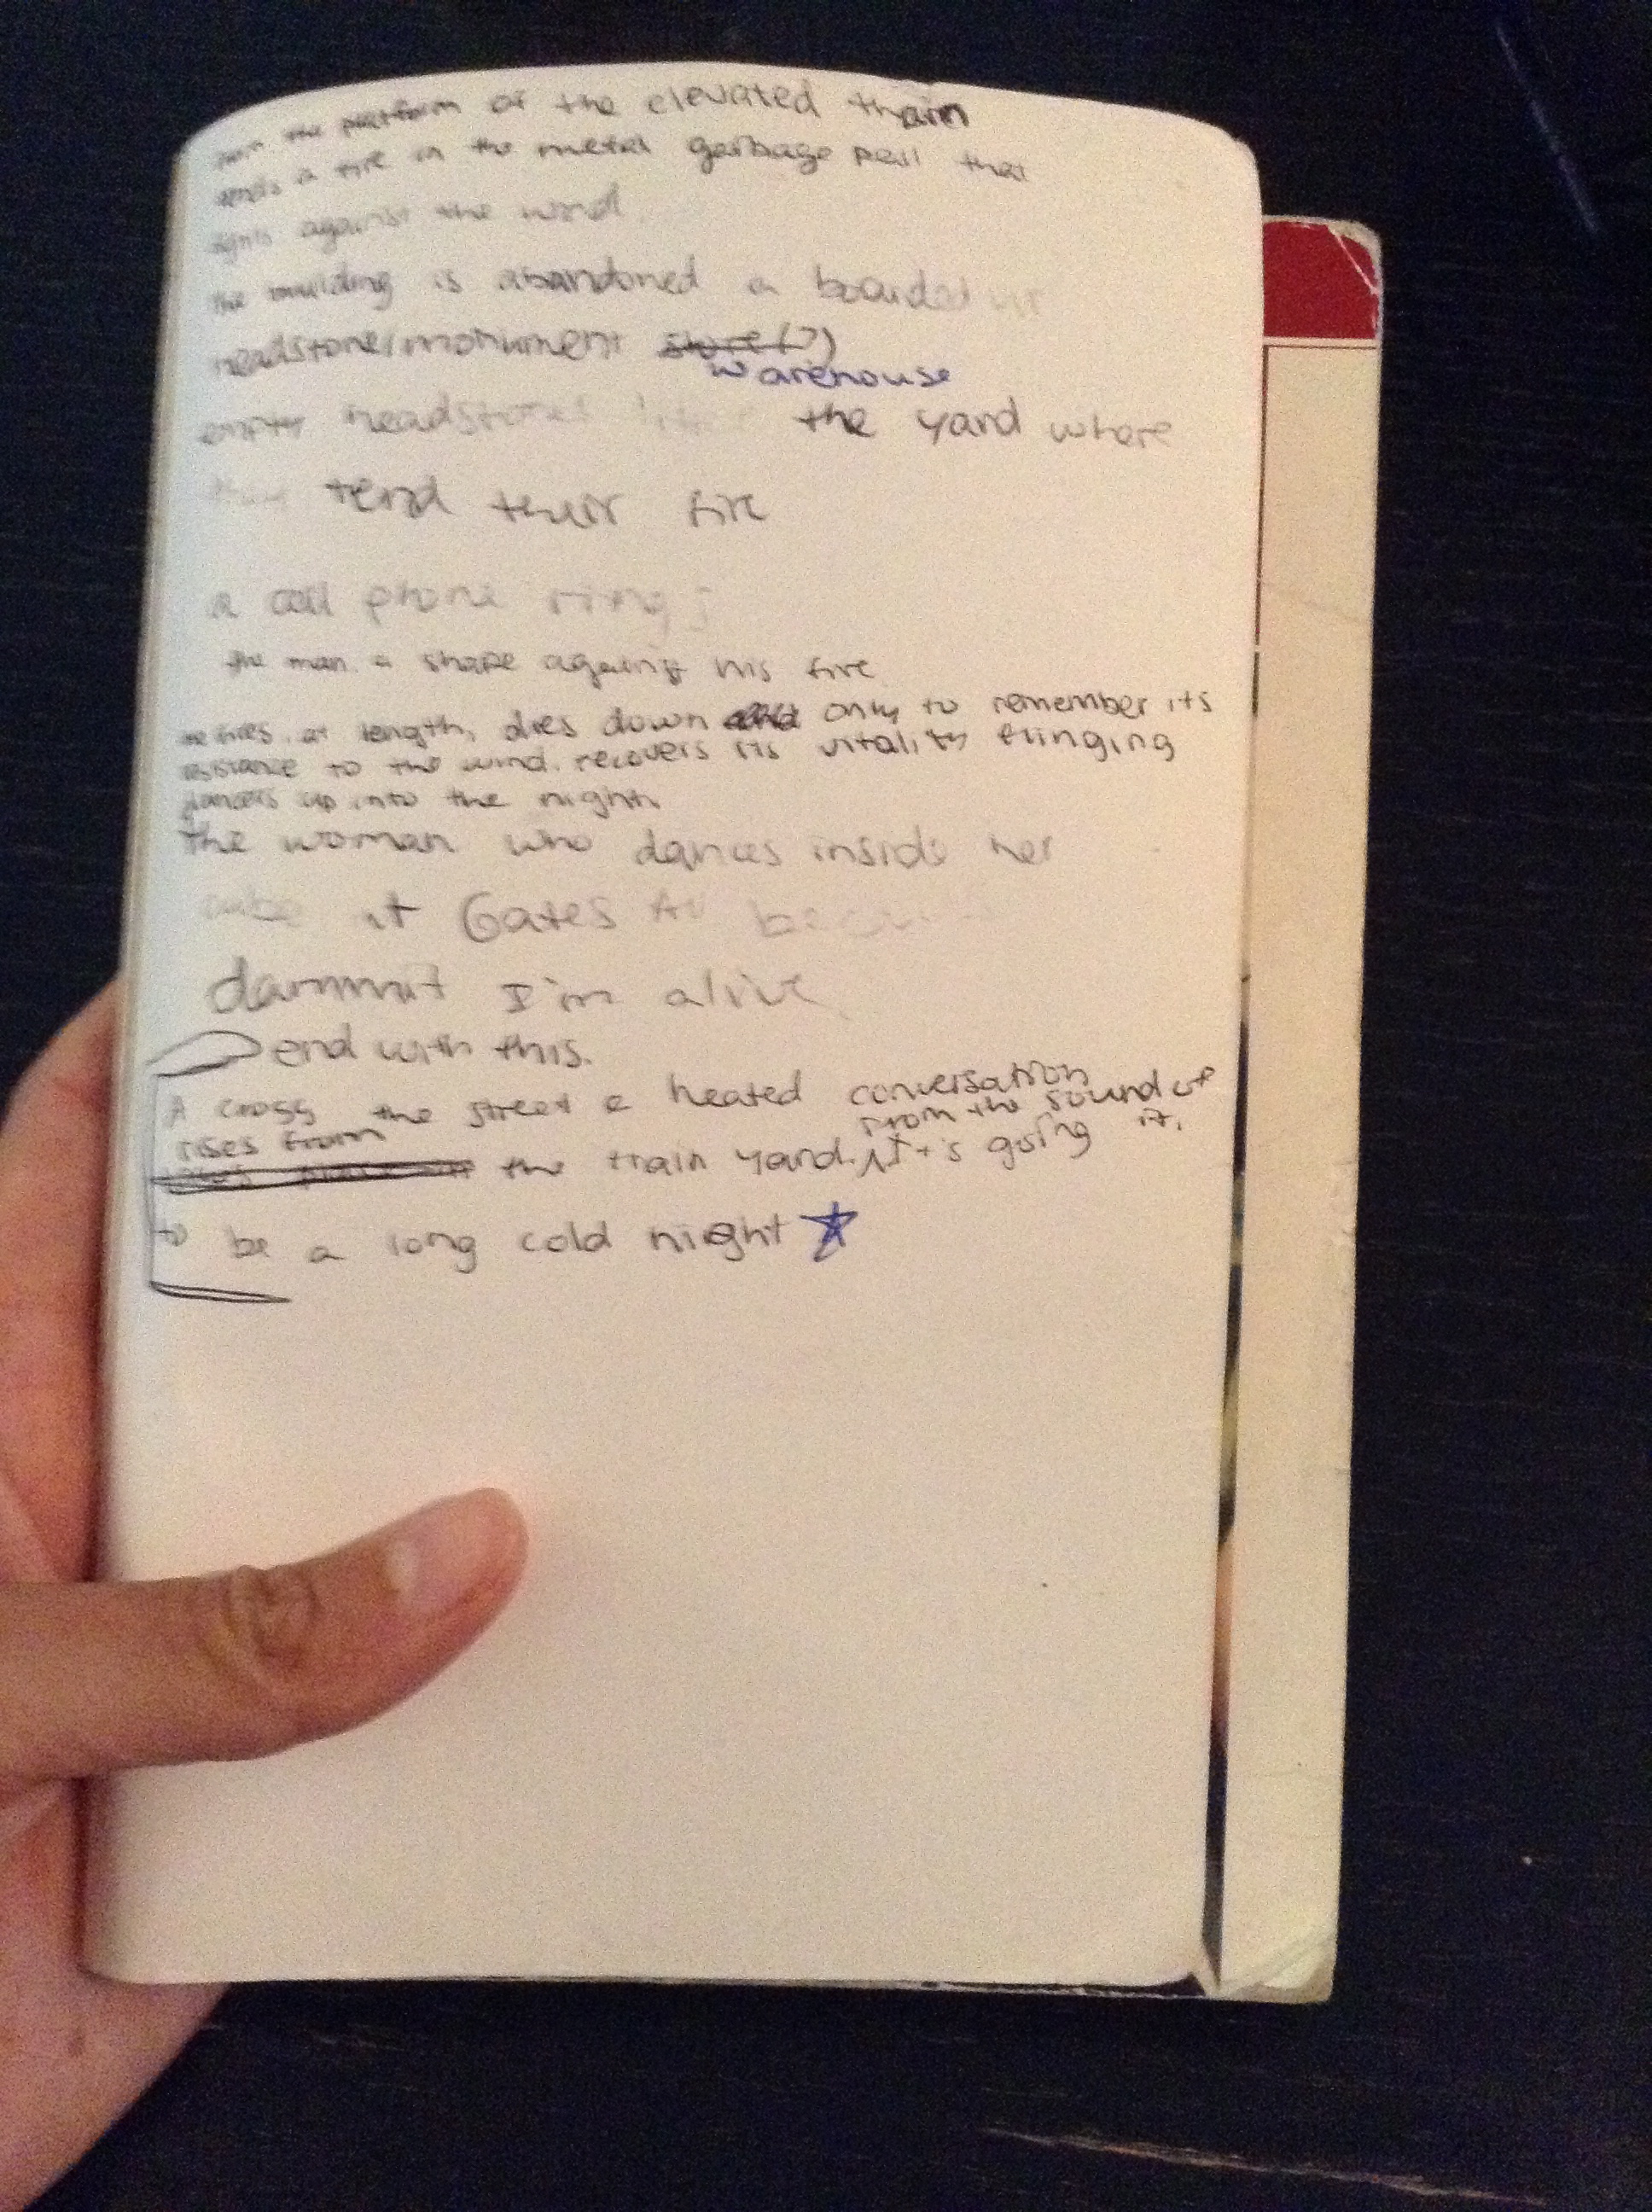 the platform of the elevated train
a fire in the metal garbage pail that
against the wind.
the building is abandoned a boarded up
headstone/monument store(?)
warehouse
empty headstones the yard where
they tend their fire
a cell phone rings
the man. a shape against his fire
at length, dies down and only to remember its
resistance to the wind. recovers its vitality flinging
dancers up into the night.
the woman who dances inside her
cube at Gates Av because
dammit I'm alive.
end with this.
A cross the street a heated conversation
rises from
from the sound of it,
the train yard. It's going
to be a long cold night